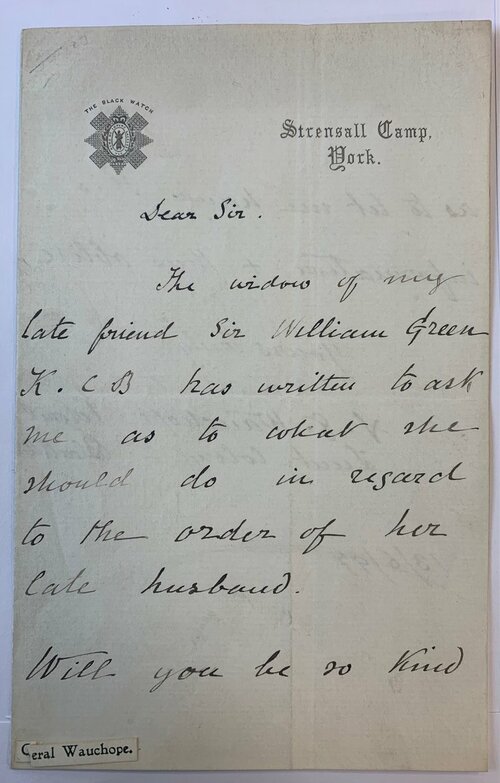 THE BLACK WATCH
Strensall Camp,
York.
Dear Sir.
The widow of my
late friend Sir William Green
K. C B has written to ask
me as to what she
should do in regard
to the order of her
late husband.
Will you be so kind
eral Wauchope.